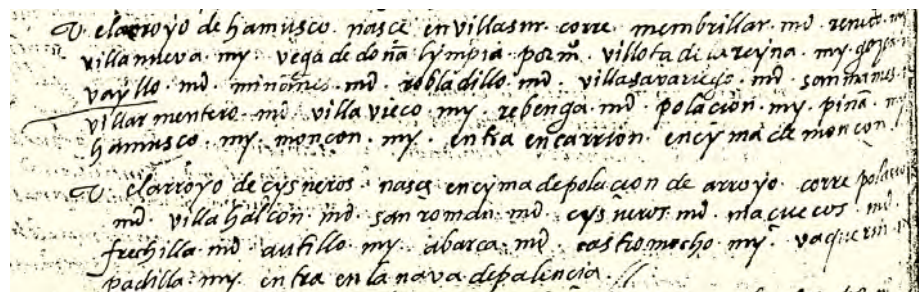 el arroyo de hamusco. nasce en villasur. corre. membrillar. md. renedo. my
villanueva. my. vega de doña lympia. por mº. villota de la reyna. my. goço
vayllo. md. miñanes. md. robladillo. md. villasavariego. md. san mames.
villarmentero. md. villa vieco. my. rebenga. md. polacion. my. piña. my
hamusco. my. monçon. my. entra en carrion. encyma de monçon.
el arroyo de cysneros. nasce encyma de polacion de arroyo. corre polacio
md. villa halcon. md. san roman. md. cysneros. md. maçuecos. md.
frechilla. md. autillo. my. abarca. md. castromocho. my. vaquerin
padilla. my. entra en la nava de palencia.